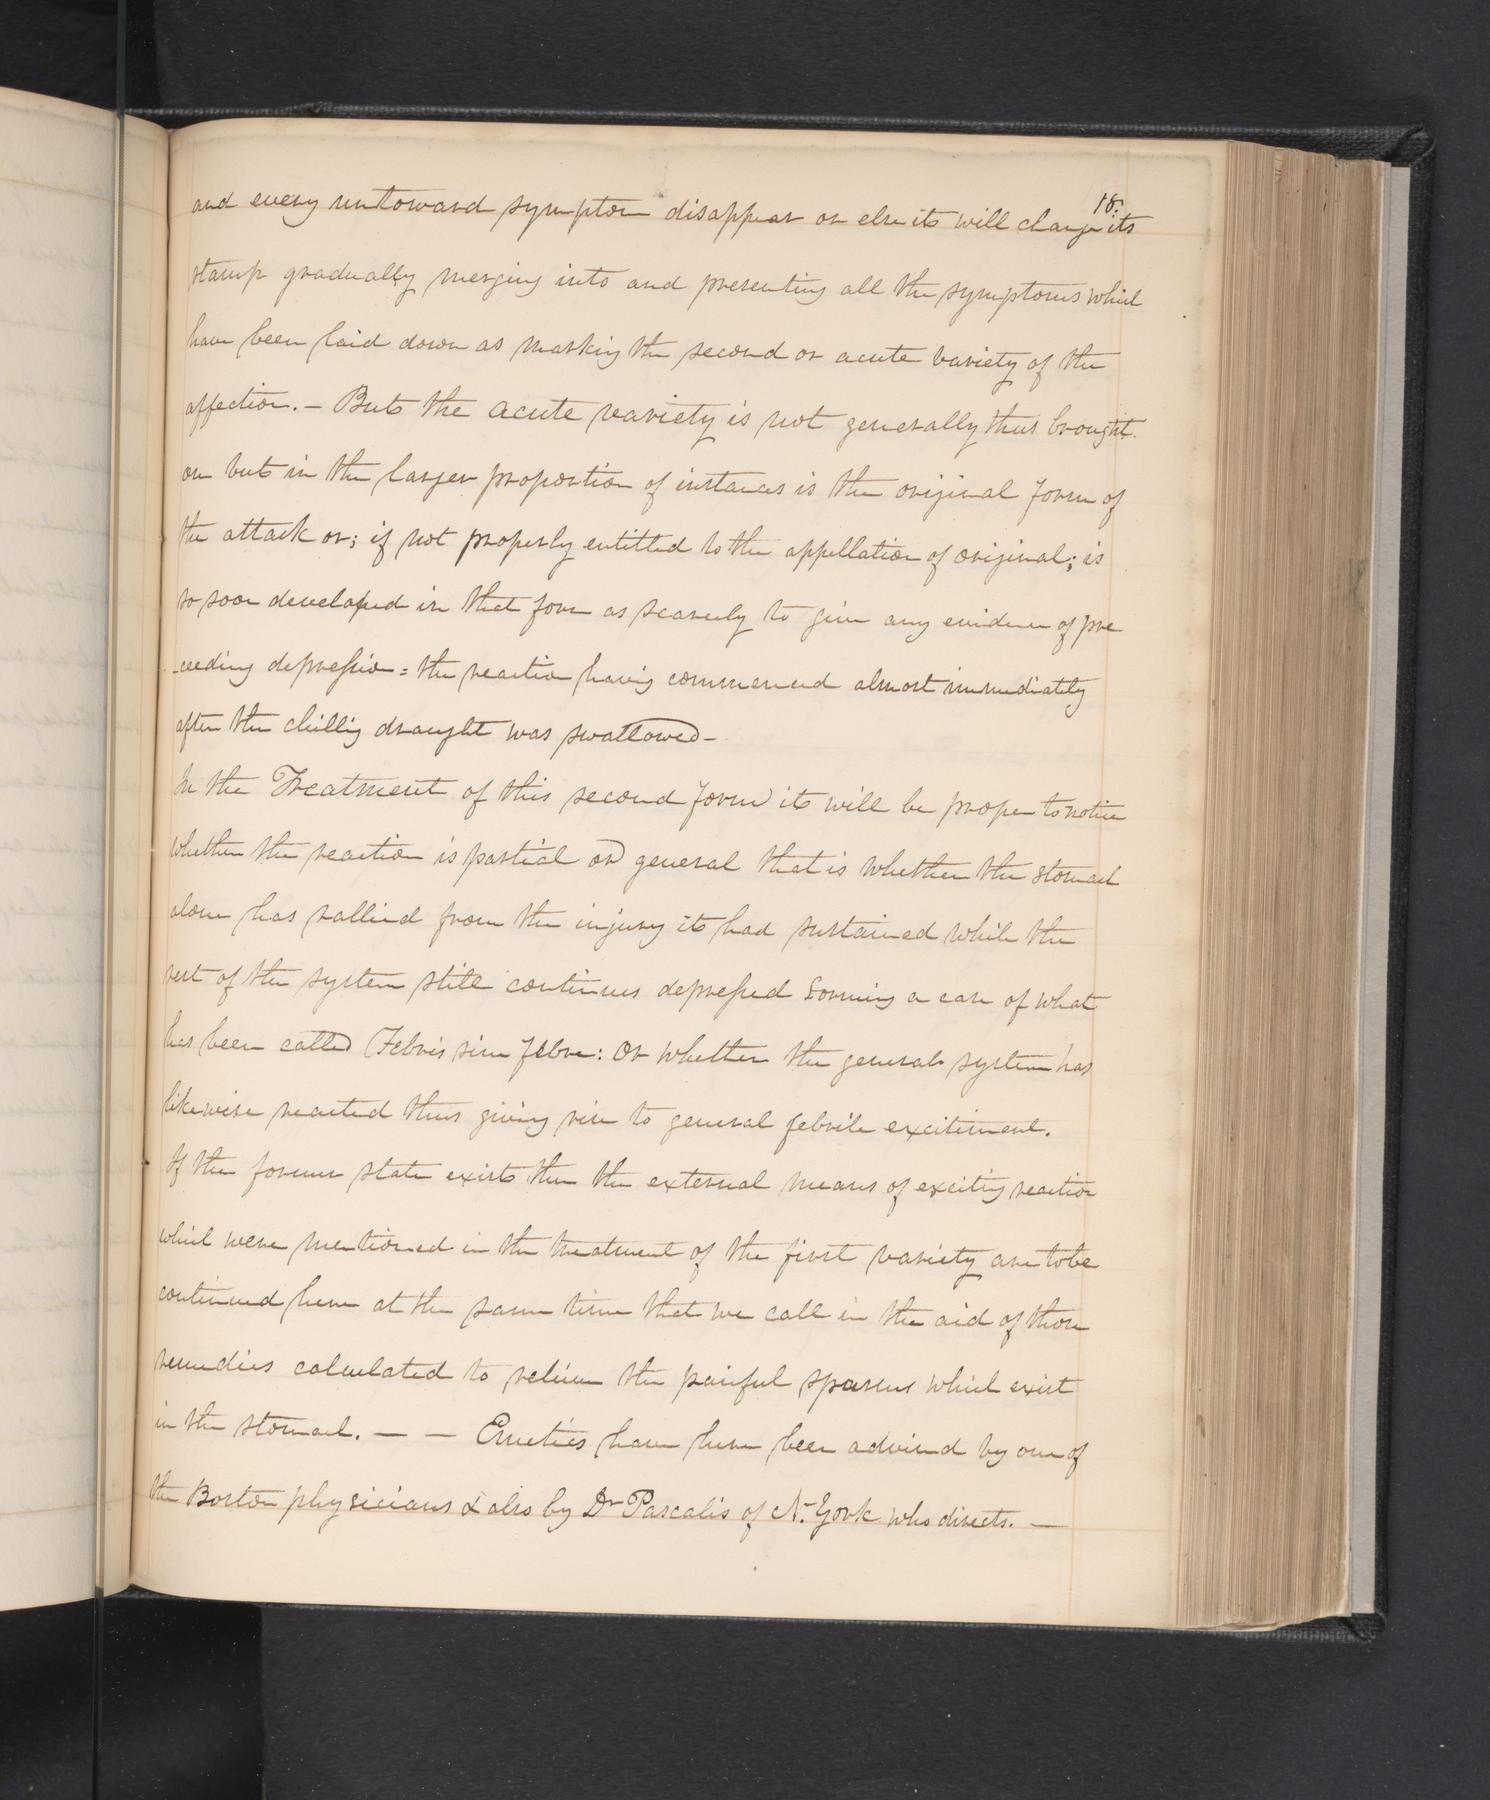 18.
and every untoward symptom disappear or else it will change its
stamp gradually merging into and presenting all the symptoms which
have been laid down as marking the second or acute variety of the
affection. — But the acute variety is not generally thus brought
on but in the larger proportion of instances is the original form of
the attack or; if not properly entitled to the appellation of original; is
so soon developed in that form as scarcely to give any evidence of pre
-ceeding depression = the reaction having commenced almost immediately
after the chilling draught was swallowed —
In the Treatment of this second form it will be proper to notice
whether the reaction is partial or general that is whether the stomach
alone has rallied from the injury it had sustained while the
rest of the system still continues depressed forming a case of what
has been called Febris sine febre: Or whether the general system has
likewise reacted thus giving rise to general febrile excitement.
If the former state exists then the external means of exciting reaction
which were mentioned in the treatment of the first variety are to be
continued here at the same time that we call in the aid of those
remedies calculated to relieve the painful spasms which exist
in the stomach. — — Emetics have here been advised by one of
the Boston physicians & also by Dr Pascalis of N. York who directs. —